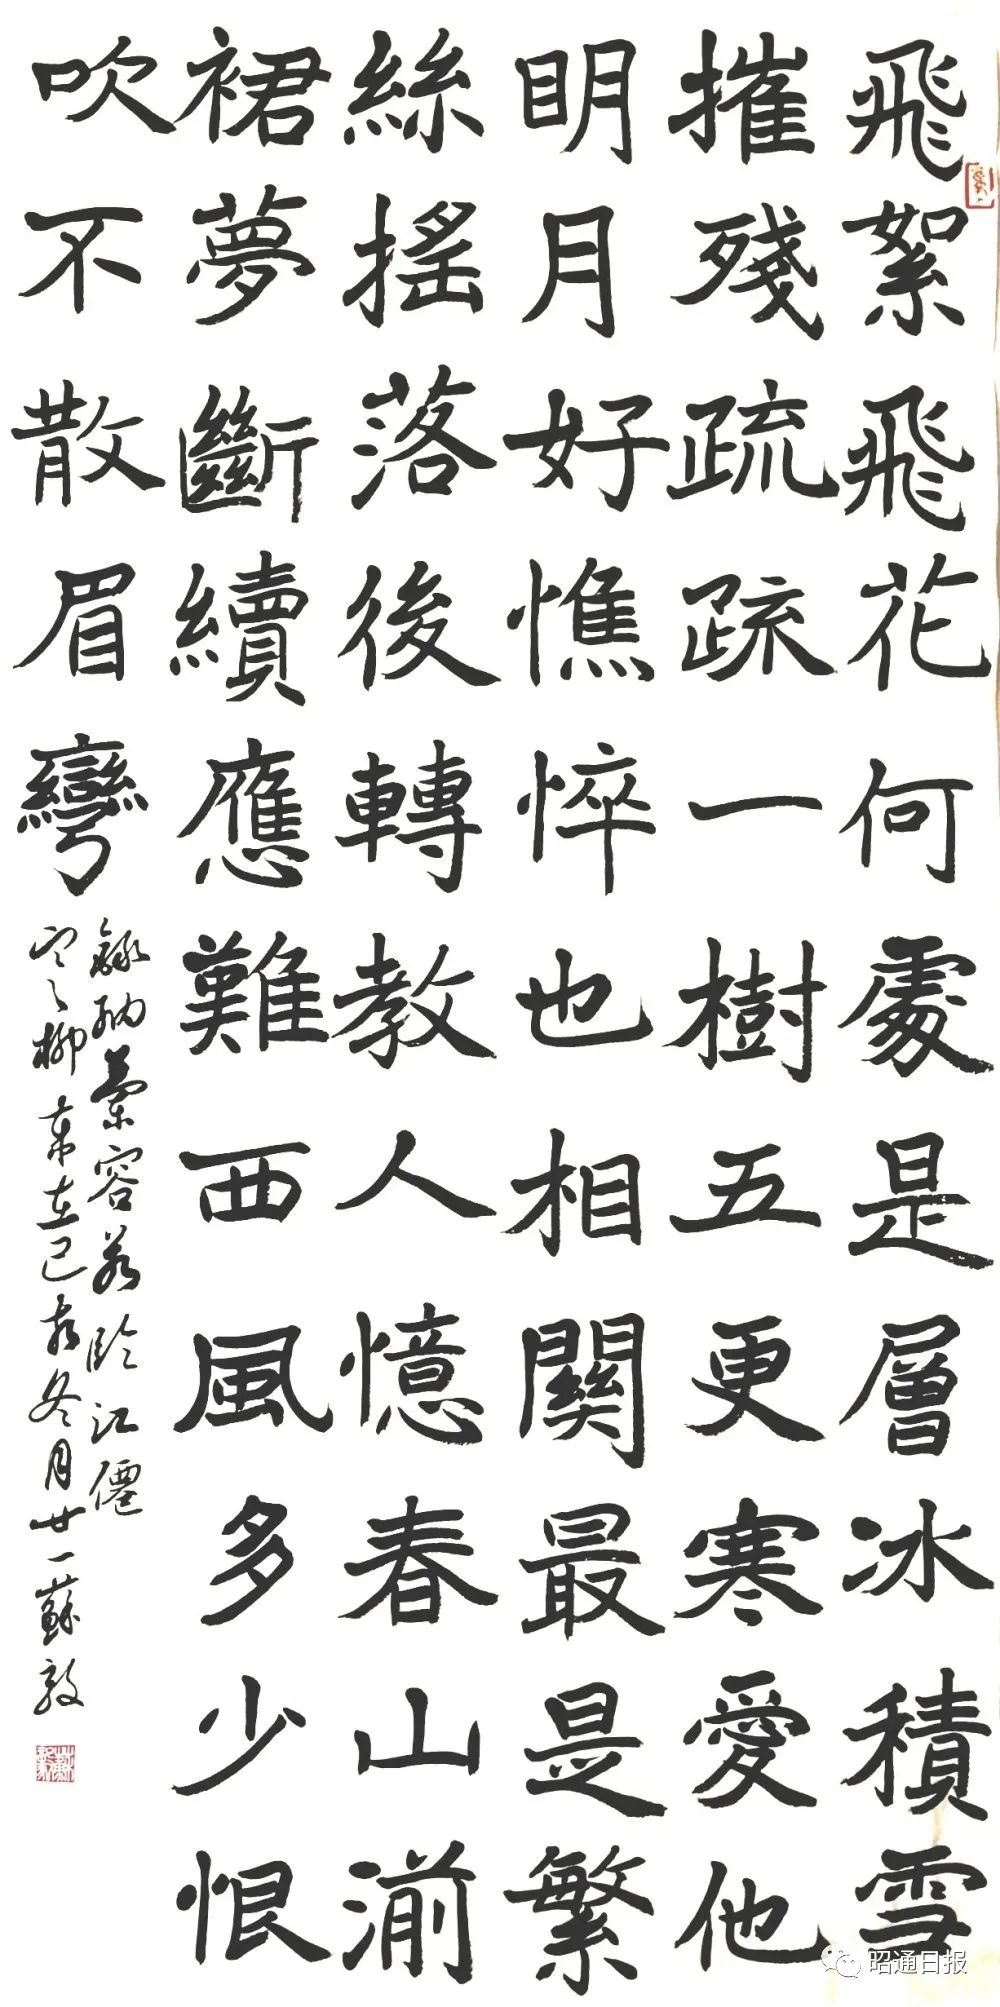 飛絮飛花何處是層冰積雪
摧殘疏疏一樹五更寒愛他
明月好憔悴也相關最是繁
絲搖落後轉教人憶春山湔
裙夢斷續應難西風多少恨
吹不散眉彎
錄納蘭容若臨江僊
寒柳歲在己亥冬月廿一蘇敦
昭通日报